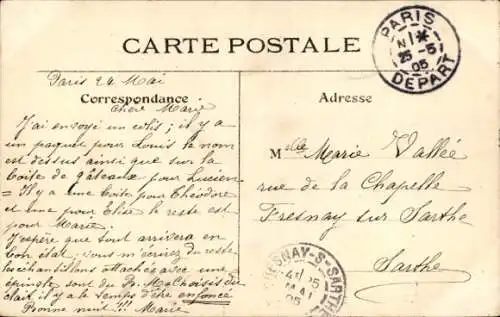 CARTE POSTALE
PARIS
25 -5
05
DEPART
Paris 24 Mai
Correspondance
Chère Marie
J'ai envoyé un colis; il y a
un paquet pour Louis le nom
est dessus ainsi que sur la
boite de gâteaux pour Lucien =
= Il y a une boite pour Théodore
et une pour Elise le reste est
pour Marie.
J'espère que tout arrivera en
bon état; vous m'écrirez du reste
les échantillons attachés avec une
épingle sont du B. M. Choisis du
clair il y a le temps d'être enfoncé
Bonne nuit !!! Marie
Adresse
Melle Marie Vallée
rue de la Chapelle
Fresnay sur Sarthe
Sarthe
FRESNAY-S-SARTHE
MAI
05